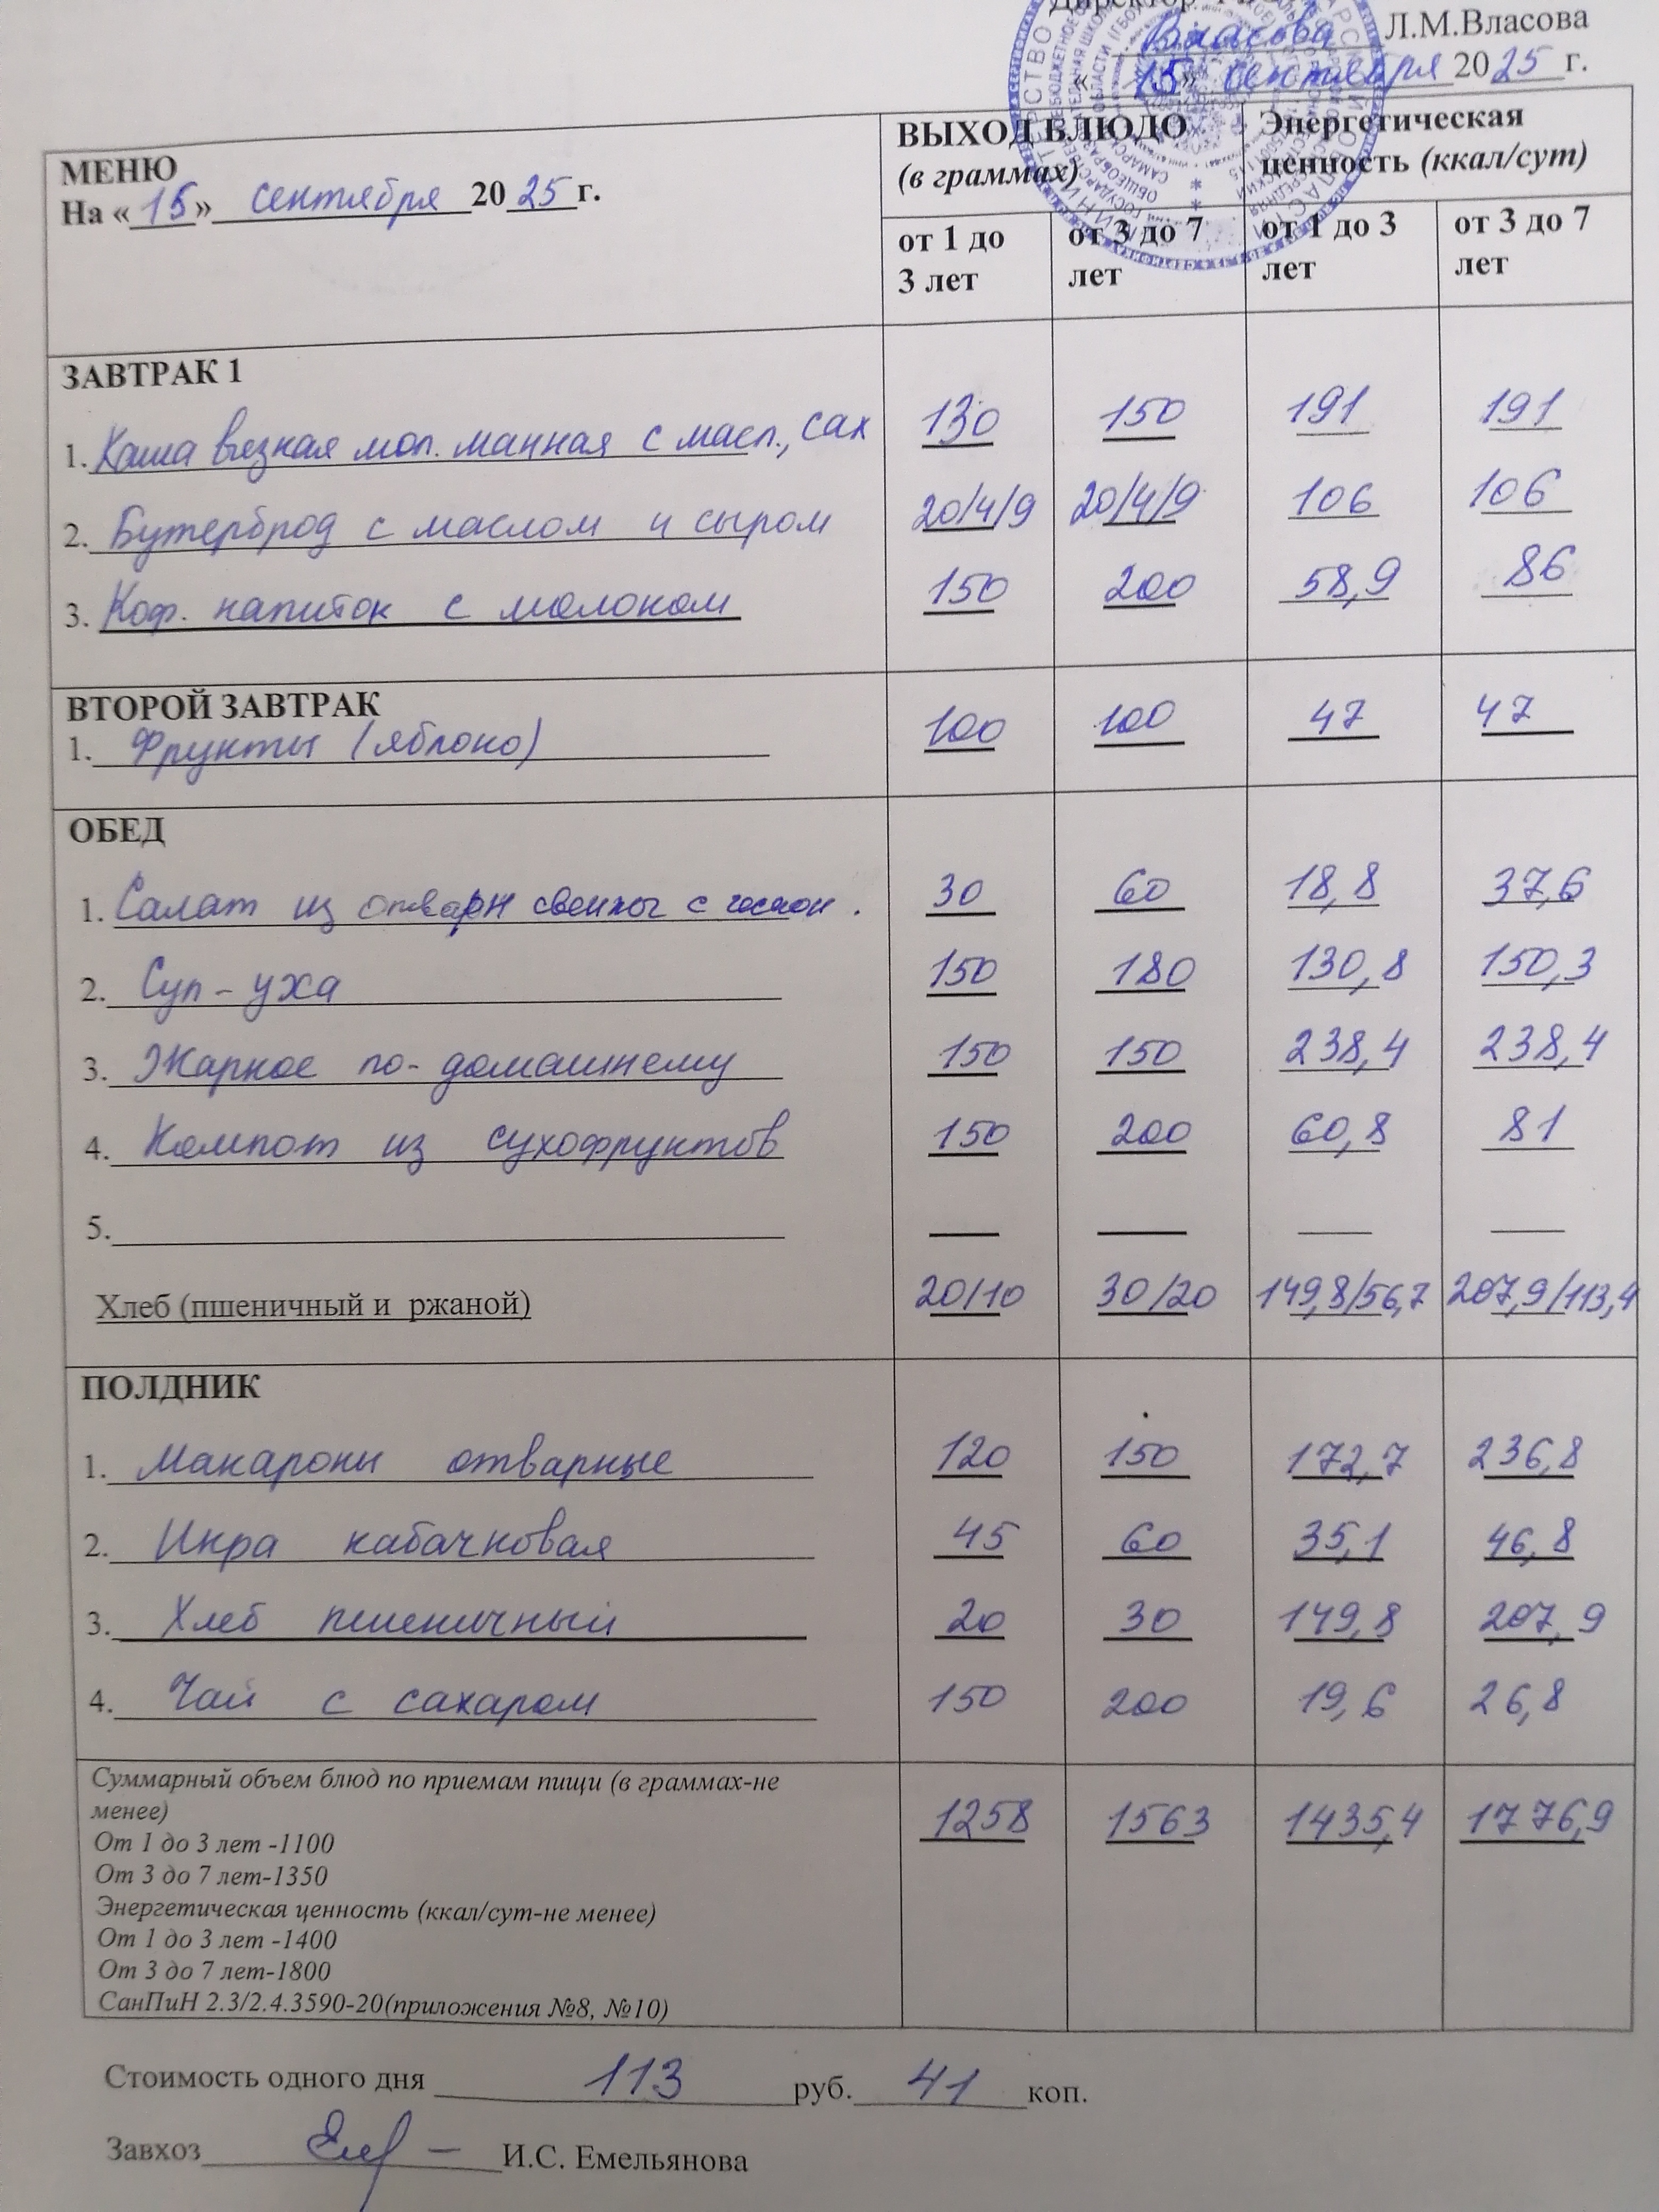 Директор
Власова Л.М.Власова
« 15 » сентября 20 25 г.
МЕНЮ
На « 15 » сентября 20 25 г.
ВЫХОД БЛЮДО
(в граммах)
Энергетическая
ценность (ккал/сут)
от 1 до
3 лет
от 3 до 7
лет
от 1 до 3
лет
от 3 до 7
лет
ЗАВТРАК 1
1. Каша вязкая мол. манная с масл., сах 130 150 191 191
2. Бутерброд с маслом и сыром 20/4/9 20/4/9 106 106
3. Коф. напиток с молоком 150 200 58,9 86
ВТОРОЙ ЗАВТРАК
1. Фрукты (яблоко) 100 100 47 47
ОБЕД
1. Салат из отварн свеклы с 30 60 18,8 37,6
2. Суп-уха 150 180 130,8 150,3
3. Жаркое по-домашнему 150 150 238,4 238,4
4. Компот из сухофруктов 150 200 60,8 81
5. — — — —
Хлеб (пшеничный и ржаной) 20/10 30/20 149,8/56,7 207,9/113,4
ПОЛДНИК
1. Макароны отварные 120 150 172,7 236,8
2. Икра кабачковая 45 60 35,1 46,8
3. Хлеб пшеничный 20 30 149,8 207,9
4. Чай с сахаром 150 200 19,6 26,8
Суммарный объем блюд по приемам пищи (в граммах-не
менее)
1258 1563 1435,4 1776,9
От 1 до 3 лет -1100
От 3 до 7 лет-1350
Энергетическая ценность (ккал/сут-не менее)
От 1 до 3 лет -1400
От 3 до 7 лет-1800
СанПиН 2.3/2.4.3590-20(приложения №8, №10)
Стоимость одного дня 113 руб. 41 коп.
Завхоз И.С. Емельянова